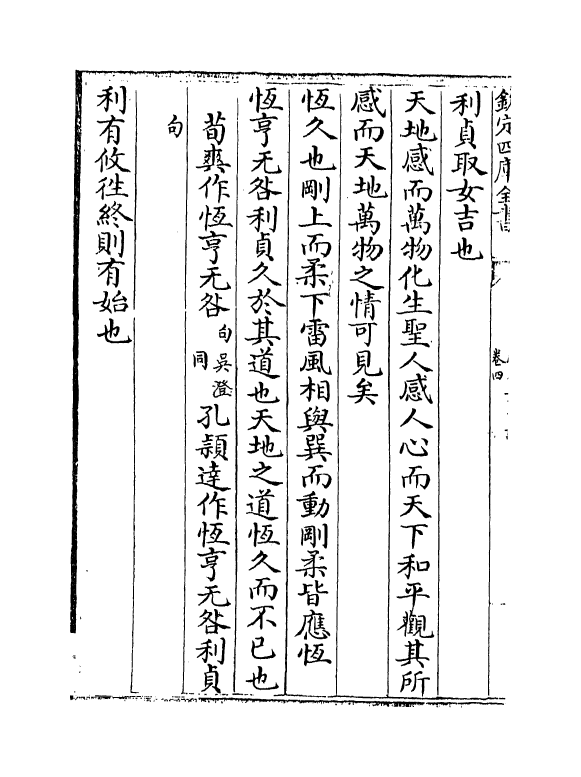 欽定四庫全書
卷四
利貞取女吉也
天地感而萬物化生聖人感人心而天下和平觀其所
感而天地萬物之情可見矣
恆久也剛上而柔下雷風相與巽而動剛柔皆應恆
恆亨无咎利貞久於其道也天地之道恆久而不已也
荀爽作恆亨无咎句吳澄同孔頴達作恆亨无咎利貞
句
利有攸徃終則有始也